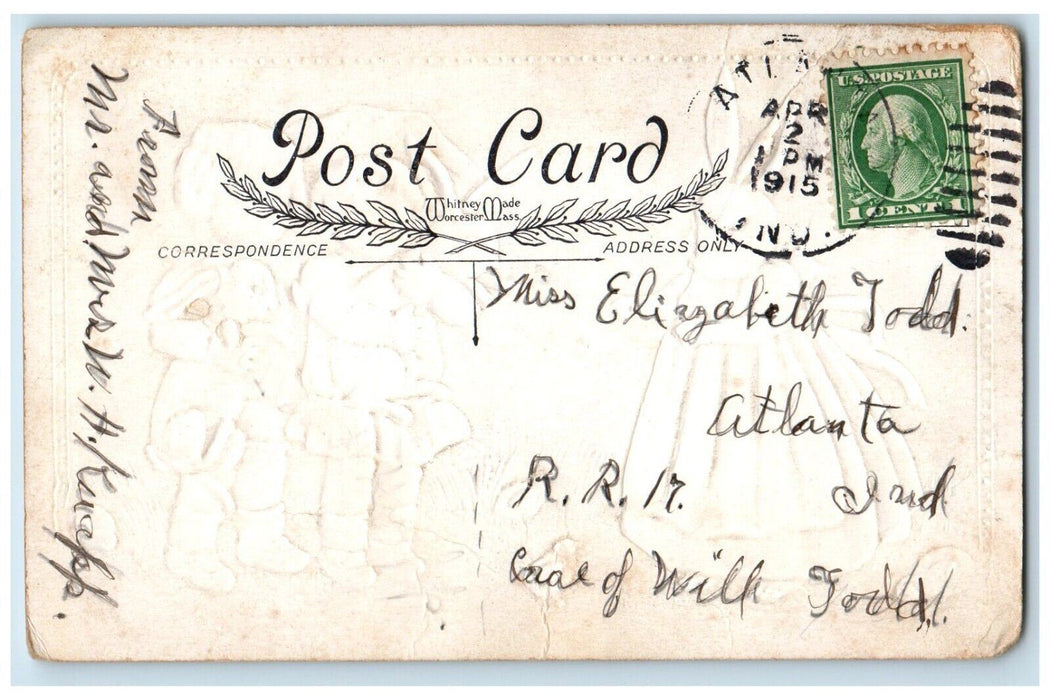 Post Card
Whitney Made
Worcester Mass.
CORRESPONDENCE
ADDRESS ONLY
ATLA
APR
2
1 PM
1915
IND.
U.S. POSTAGE
1 CENT 1
From
Mr. and Mrs W. H. Knapp.
Miss Elizabeth Todd.
Atlanta
R. R. 17. Ind
Care of Will Todd.